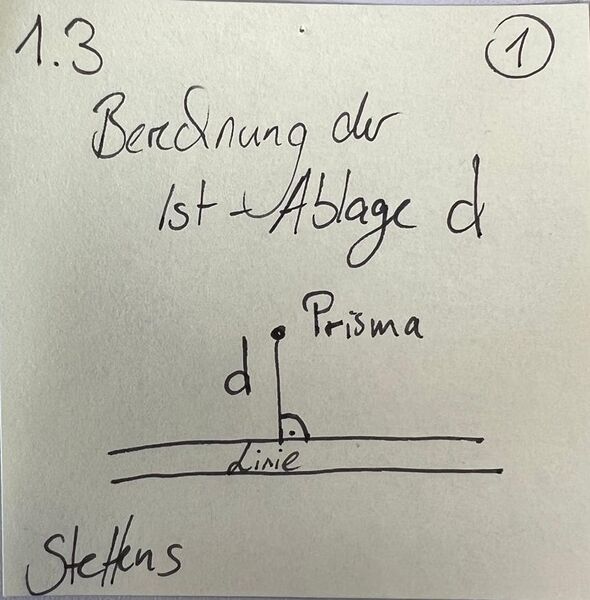 1.3
1
Berechnung der
Ist-Ablage d
Prisma
d
Linie
Steffens